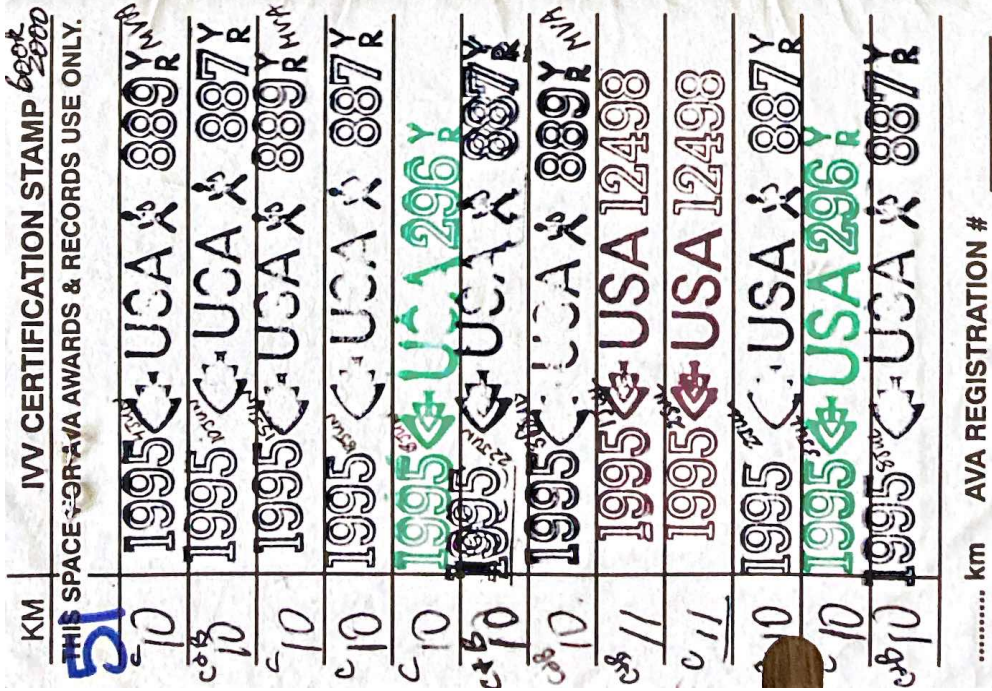 KM IVV CERTIFICATION STAMP BOOK 2000
51 THIS SPACE FOR AVA AWARDS & RECORDS USE ONLY.
C 10 1995 USA 889 YR MVA
C+B 10 1995 10 JUN USA 887 YR
C 10 1995 USA 889 YR MVA
C 10 1995 USA 887 YR
C 10 1995 USA 296 YR
C+B 10 1995 22 JUN USA 887 YR
C+B 10 1995 USA 889 YR MVA
C+B 11 1995 USA 12498
C 11 1995 USA 12498
10 1995 USA 887 YR
C 10 1995 USA 296 YR
C+B 10 1995 USA 887 YR
........... km AVA REGISTRATION #